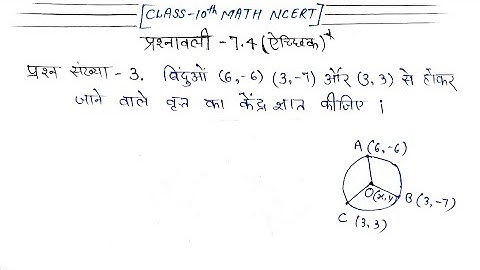 [CLASS-10th MATH NCERT]
प्रश्नावली -7.4 (ऐच्छिक)*
प्रश्न संख्या - 3. बिंदुओं (6,-6) (3,-7) और (3,3) से होकर
जाने वाले वृत्त का केंद्र ज्ञात कीजिए ।
A (6,-6)
O(x,y)
B (3,-7)
C (3,3)